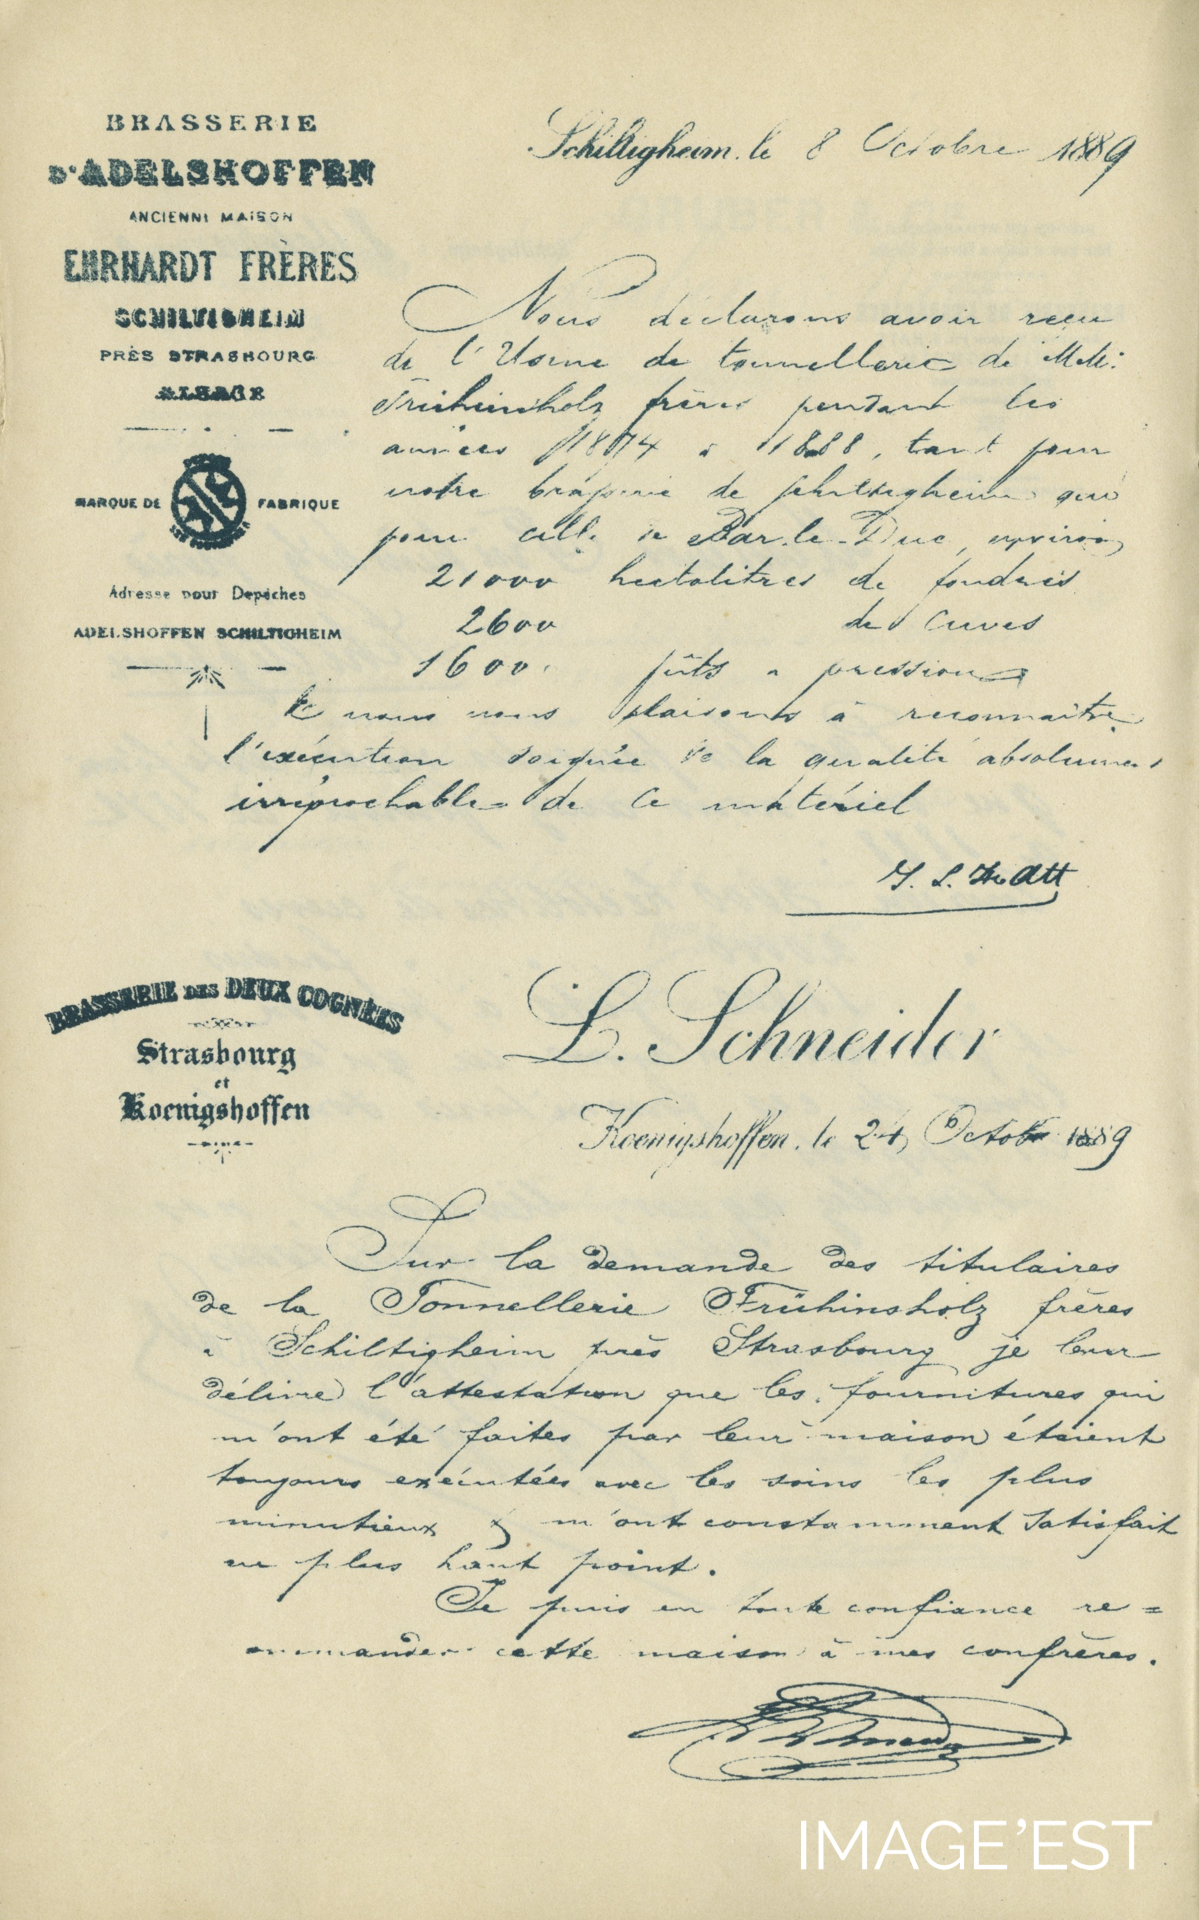 BRASSERIE
D'ADELSHOFFEN
ANCIENNE MAISON
EHRHARDT FRÈRES
SCHILTIGHEIM
PRÈS STRASBOURG
ALSACE
MARQUE DE FABRIQUE
Adresse pour Depêches
ADELSHOFFEN SCHILTIGHEIM
Schiltigheim, le 8 Octobre 1889
Nous déclarons avoir reçu
de l'Usine de tonnellerie de MM:
Frühinsholz frères pendant les
années 1874 à 1888, tant pour
notre brasserie de Schiltigheim que
pour celle de Bar-le-Duc, environ
21000 hectolitres de foudres
2600 de cuves
1600 fûts à pression
& nous nous plaisons à reconnaître
l'exécution soignée & la qualité absolument
irréprochable de ce matériel
BRASSERIE DES DEUX COGNÉES
Strasbourg
et
Koenigshoffen
L. Schneider
Koenigshoffen, le 24 Octobre 1889
Sur la demande des titulaires
de la Tonnellerie Frühinsholz frères
à Schiltigheim près Strasbourg je leur
délivre l'attestation que les fournitures qui
m'ont été faites par leur maison étaient
toujours exécutées avec les soins les plus
minutieux & m'ont constamment satisfait
au plus haut point.
Je puis en toute confiance re=
commander cette maison à mes confrères.
IMAGE'EST